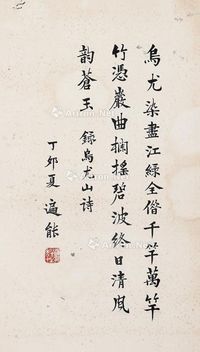 烏尤染盡江綠全偕千竿萬竿
竹憑巖曲搁搖碧波終日清風
韵蒼玉 錄烏尤山詩
丁卯夏 遍能